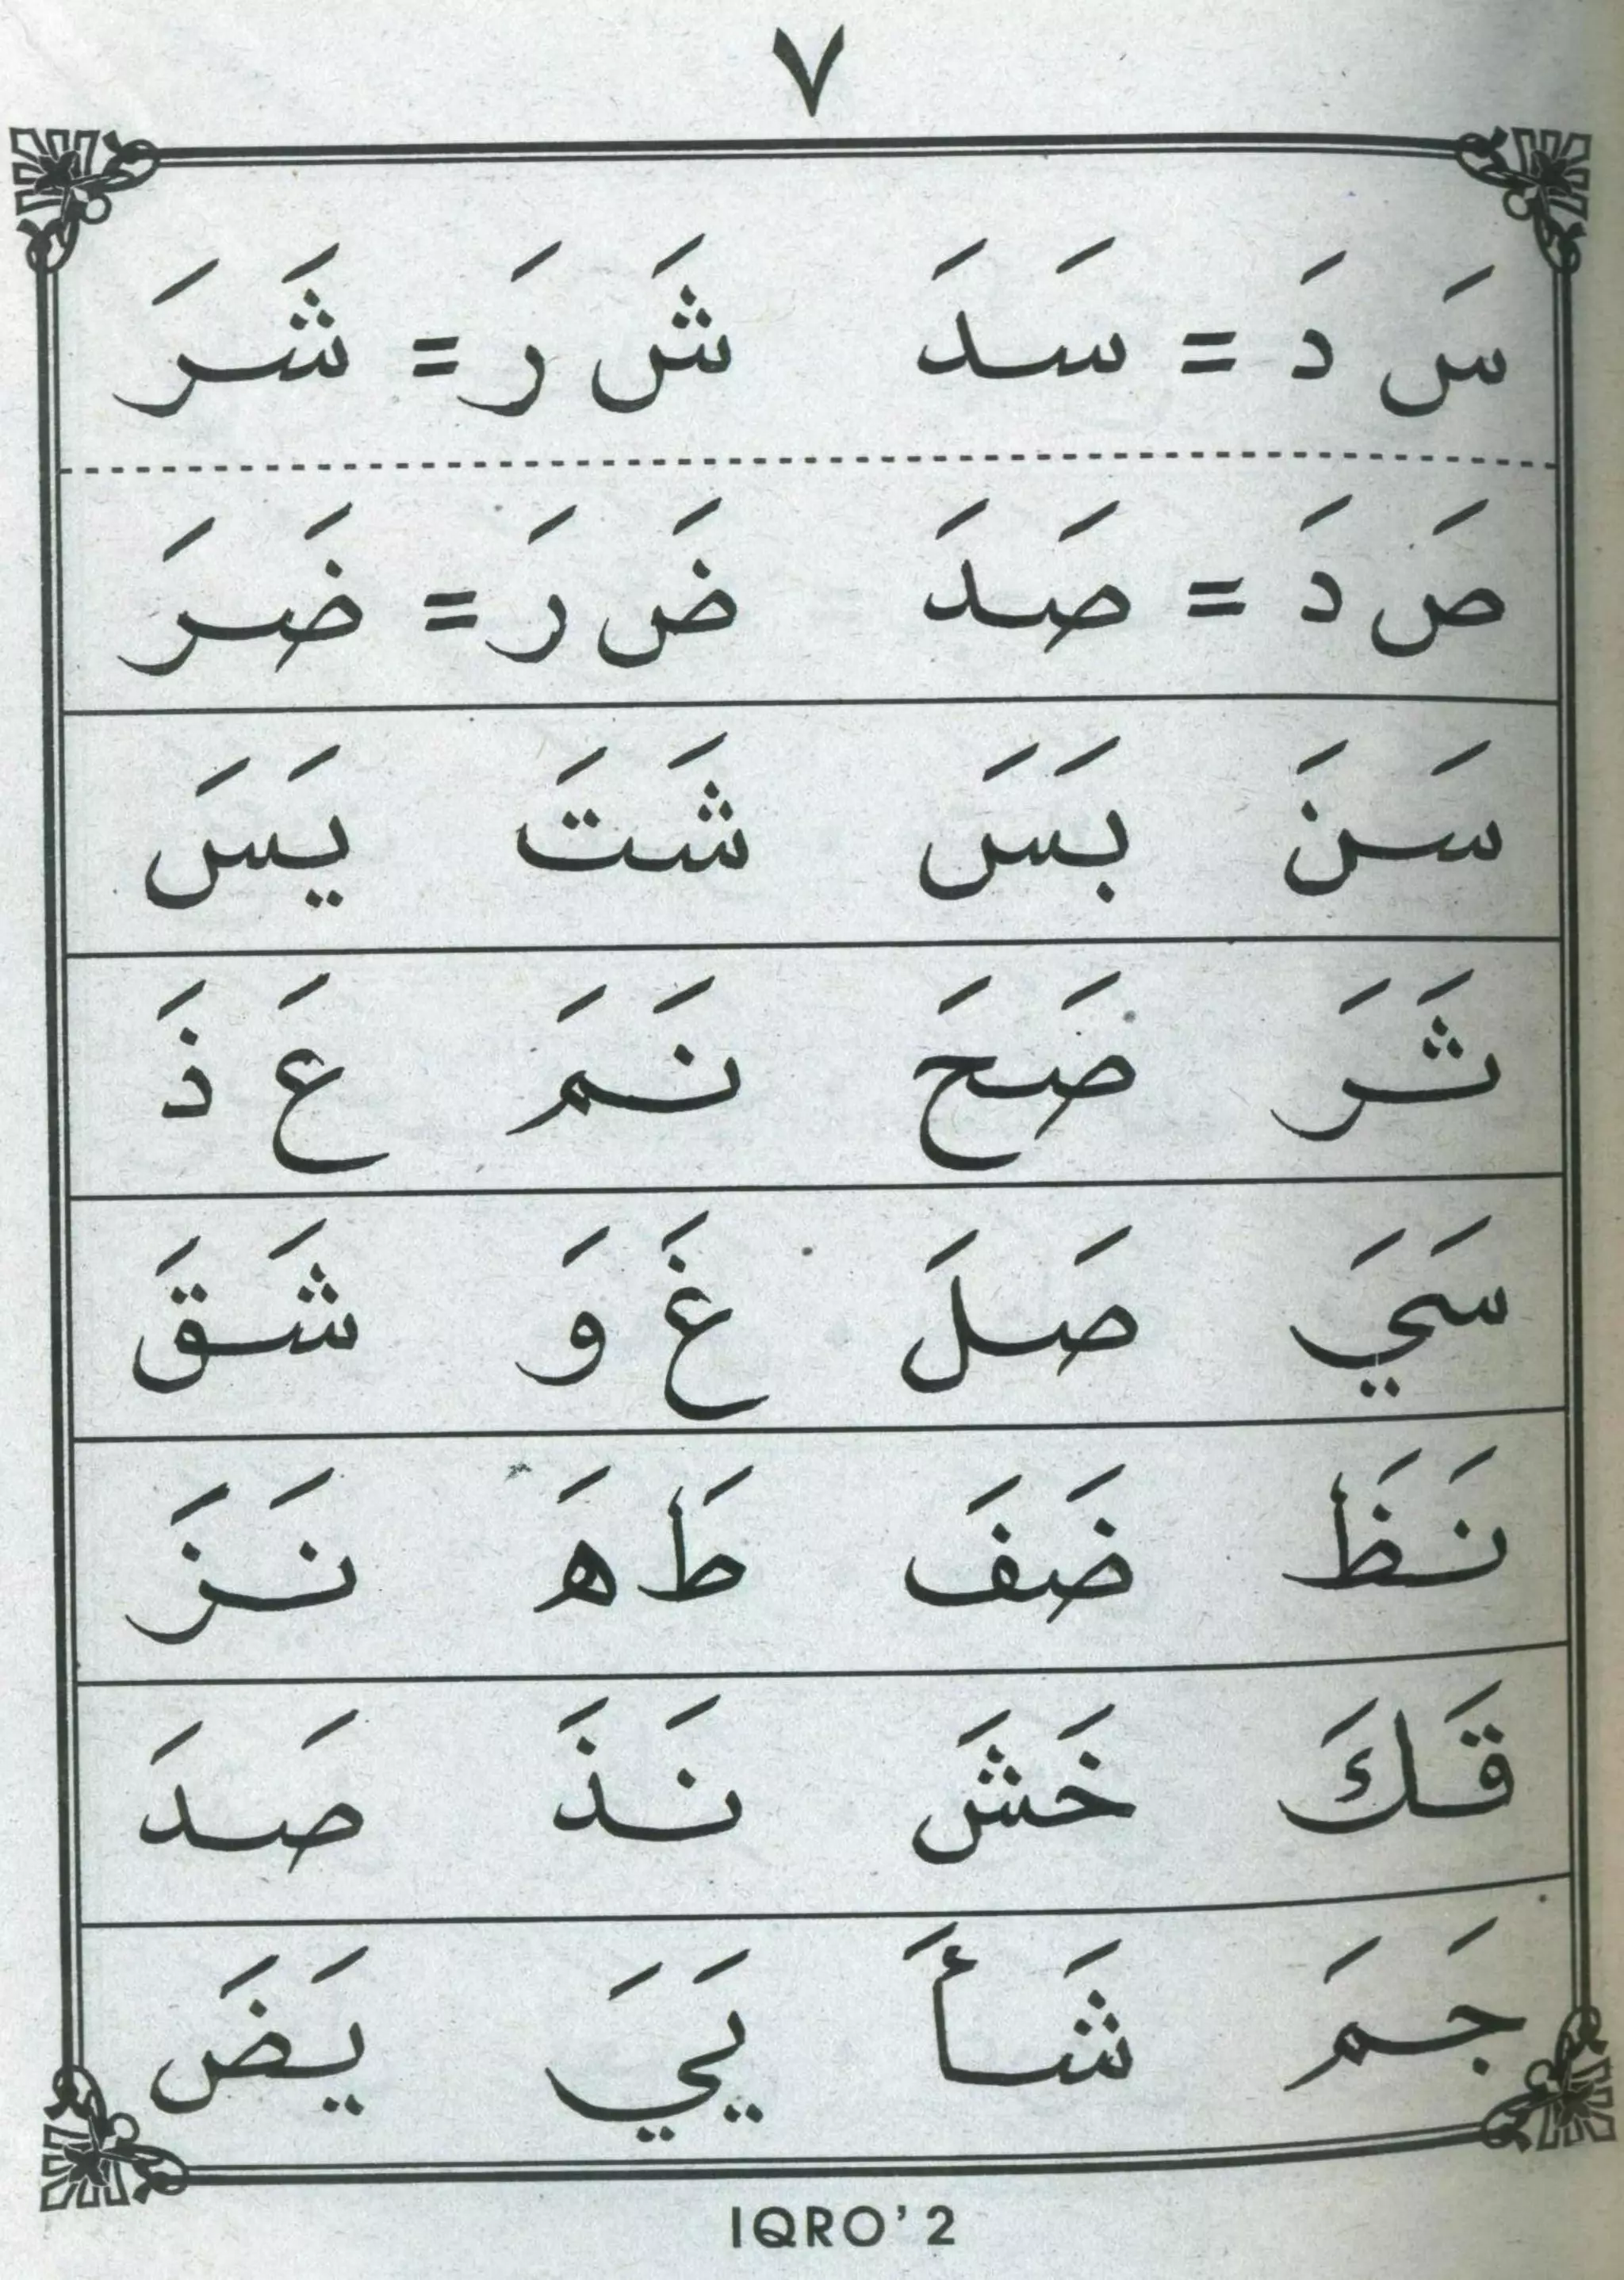 ٧
سَ دَ = سَدَ شَ رَ = شَرَ
صَ دَ = صَدَ ضَ رَ = ضَرَ
سَنَ بَسَ شَتَ يَسَ
ثَرَ صَحَ نَمَ عَ ذَ
سَيَ صَلَ غَ وَ شَقَ
نَظَ ضَفَ طَ هَ نَزَ
قَكَ خَشَ نَذَ صَدَ
جَمَ شَأَ يَيَ يَضَ
IQRO’ 2